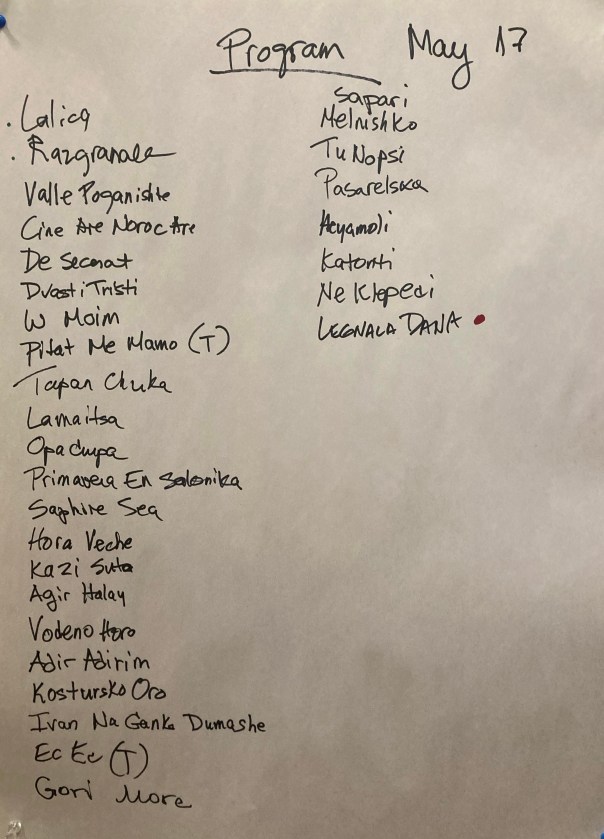 Program May 17
. Lalica
. Razgranale
Valle Poganishte
Cine Are Noroc Are
De Secerat
Dvasti Tristi
W Moim
Pitat Me Mamo (T)
Tapan Chuka
Lamaitsa
Opa Cupa
Primavera En Salonika
Saphire Sea
Hora Veche
Kazi Suta
Agir Halay
Vodeno Horo
Adir Adirim
Kostursko Oro
Ivan Na Ganka Dumashe
Ec Ec (T)
Gori More
Sapari
Melnishko
Tu Nopsi
Pasarelska
Acyamoli
Ne Klepeci
LEGNALA DANA